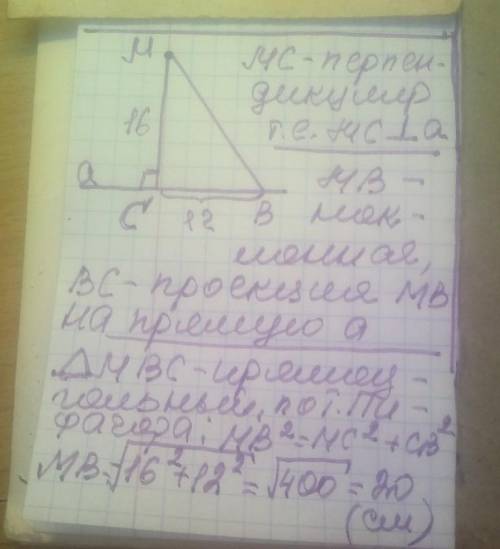 M
MC-перпен-
дикуляр
16
т.е. MC⊥a
a
MB-
нак-
C 12 B
лонная,
BC-проекция MB
на прямую a
△MBC-прямоу-
гольный, по т. Пи-
фагора: MB²=MC²+CB²
MB=√16²+12²=√400=20
(см)